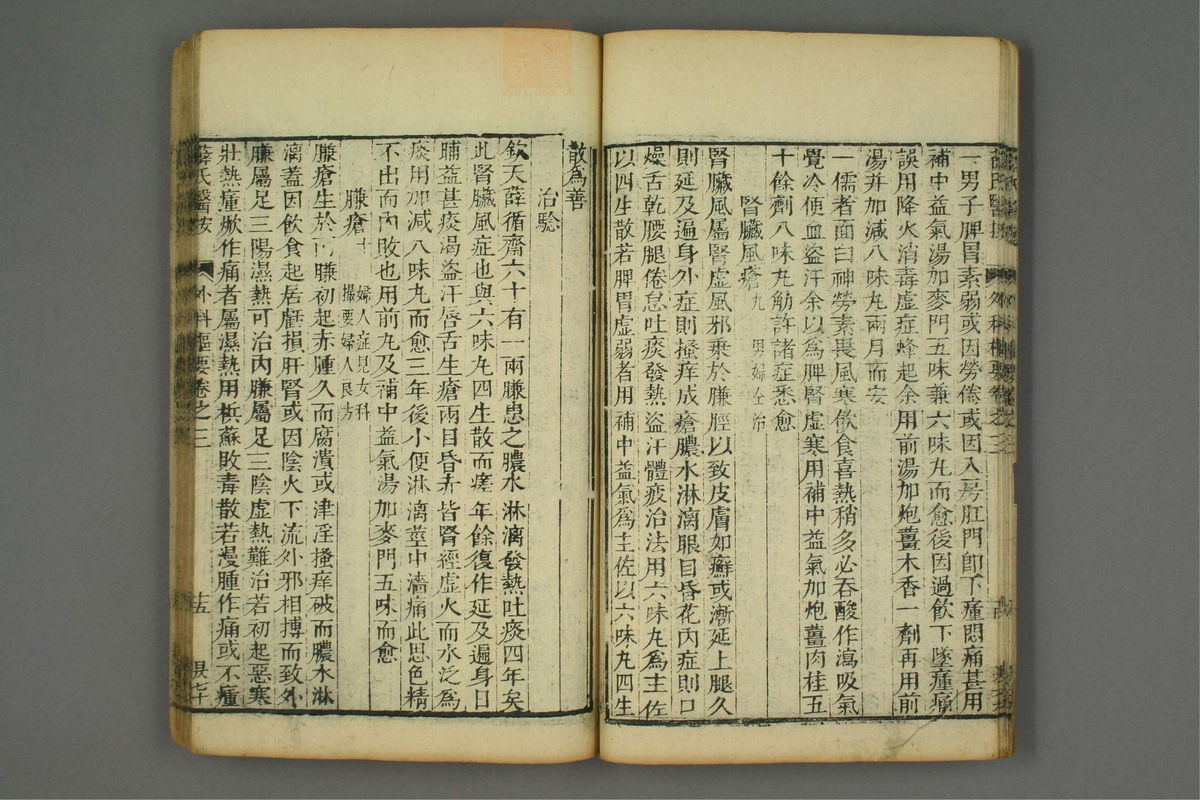 一男子脾胃素弱或因勞倦或因入房肛門即下腫悶痛甚用
補中益氣湯加麥門五味兼六味丸而愈後因過飲下墜腫痛
誤用降火消毒虛症蜂起余用前湯加炮薑木香一劑再用前
湯并加減八味丸兩月而安
一儒者面白神勞素畏風寒飲食喜熱稍多必吞酸作瀉吸氣
覺冷便血盜汗余以爲脾腎虛寒用補中益氣加炮薑肉桂五
十餘劑八味丸觔許諸症悉愈
腎臟風瘡九 男婦仝治
腎臟風屬腎虛風邪乗於臁脛以致皮膚如癬或漸延上腿久
則延及遍身外症則搔痒成瘡膿水淋漓眼目昏花內症則口
燥舌乾腰腿倦怠吐痰發熱盜汗體疲治法用六味丸爲主佐
以四生散若脾胃虛弱者用補中益氣爲主佐以六味丸四生
散爲善
治驗
欽天薛循齋六十有一兩臁患之膿水淋漓發熱吐痰四年矣
此腎臟風症也與六味丸四生散而瘥年餘復作延及遍身日
晡益甚痰渴盜汗唇舌生瘡兩目昏赤皆腎經虛火而水泛爲
痰用加減八味丸而愈三年後小便淋漓莖中濇痛此思色精
不出而內敗也用前丸及補中益氣湯加麥門五味而愈
臁瘡十 婦人症見女科
撮要婦人良方
臁瘡生於兩臁初起赤腫久而腐潰或津淫搔痒破而膿水淋
漓蓋因飲食起居虧損肝腎或因陰火下流外邪相搏而致外
臁屬足三陽濕熱可治內臁屬足三陰虛熱難治若初起惡寒
壯熱腫焮作痛者屬濕熱用梹蘇敗毒散若漫腫作痛或不腫
薛氏醫按 外科樞要卷之三 十五